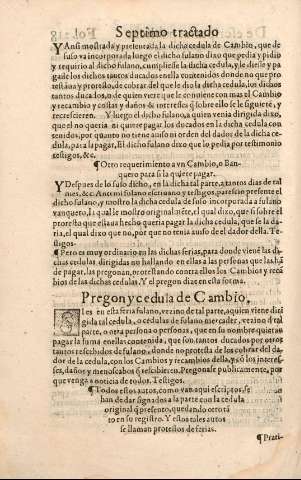 Septimo tractado
Y Ansi mostrada y presentada la dicha cedula de Cambio, que de
suso va incorporada luego el dicho fulano dixo que pedia y pidio
y requirio al dicho fulano, cumpliesse la dicha cedula, y le diesse y pa
gasse los dichos tantos ducados en ella contenidos donde no que pro
testaua y protesto, de cobrar del que le dio la dicha cedula, los dichos
tantos ducados, o de quien vere que le conuiene con mas el Cambio
y recambio y costas y daños & interesses q̃ sobre ello se le siguiere, y
recrescieren. Y luego el dicho fulano, a quien venia dirigida dixo,
que el no queria ni quiere pagar los ducados en la dicha cedula con
tenidos, por quanto no tiene auiso ni orden del dador de la dicha ce
dula, para la pagar. El dicho fulano dixo que lo pedia por testimonio
testigos, &c.
¶ Otro requerimiento a vn Cambio, o Ban-
quero para si la quiere pagar.
Y Despues de lo suso dicho, en la dicha tal parte, a tantos dias de tal
mes, &c. Ante mi fulano escriuano y testigos, parescio presente el
dicho fulano, y mostro la dicha cedula de suso incorporada a fulano
vanquero, la qual le mostro originalmẽte, el qual dixo, que si sobre el
protesto que esta ua hecho queria pagar la dicha cedula, que se la da-
ria, el qual dixo que no, por que no tenia auiso del dador della. Te-
stigos.
¶ Pero es muy ordinario en las dichas ferias, para donde vienẽ las di-
chas cedulas dirigidas no hallando en ellas a las personas que las hã
de pagar, las pregonan, protestando contra ellos los Cambios y reca
bios de las dichas cedulas. Y el pregon dize en esta forma.
Pregon y cedula de Cambio.
Si es en esta feria fulano, vezino de tal parte, a quien viene diri
gida tal cedula, o cedulas de fulano mercader, vezino de tal
parte, o otra persona o personas, que en su nombre quieran
pagar la suma en ellas contenida, que son tantos ducados por otros
tantos rescebidos de fulano, donde no protesta de los cobrar del da-
dor de la cedula, con los Cambios y recambios della, y cõ los interes-
ses, daños y menoscabos q̃ rescibieren. Pregonase publicamente, por
que venga a noticia de todos. Testigos.
¶ Todos estos autos, como van aqui escriptos, se
han de dar signados a la parte con la cedula
original q̃ presento, quedando cerrado
to en su registro. Y estos tales autos
se llaman protestos de ferias.
¶ Prati-